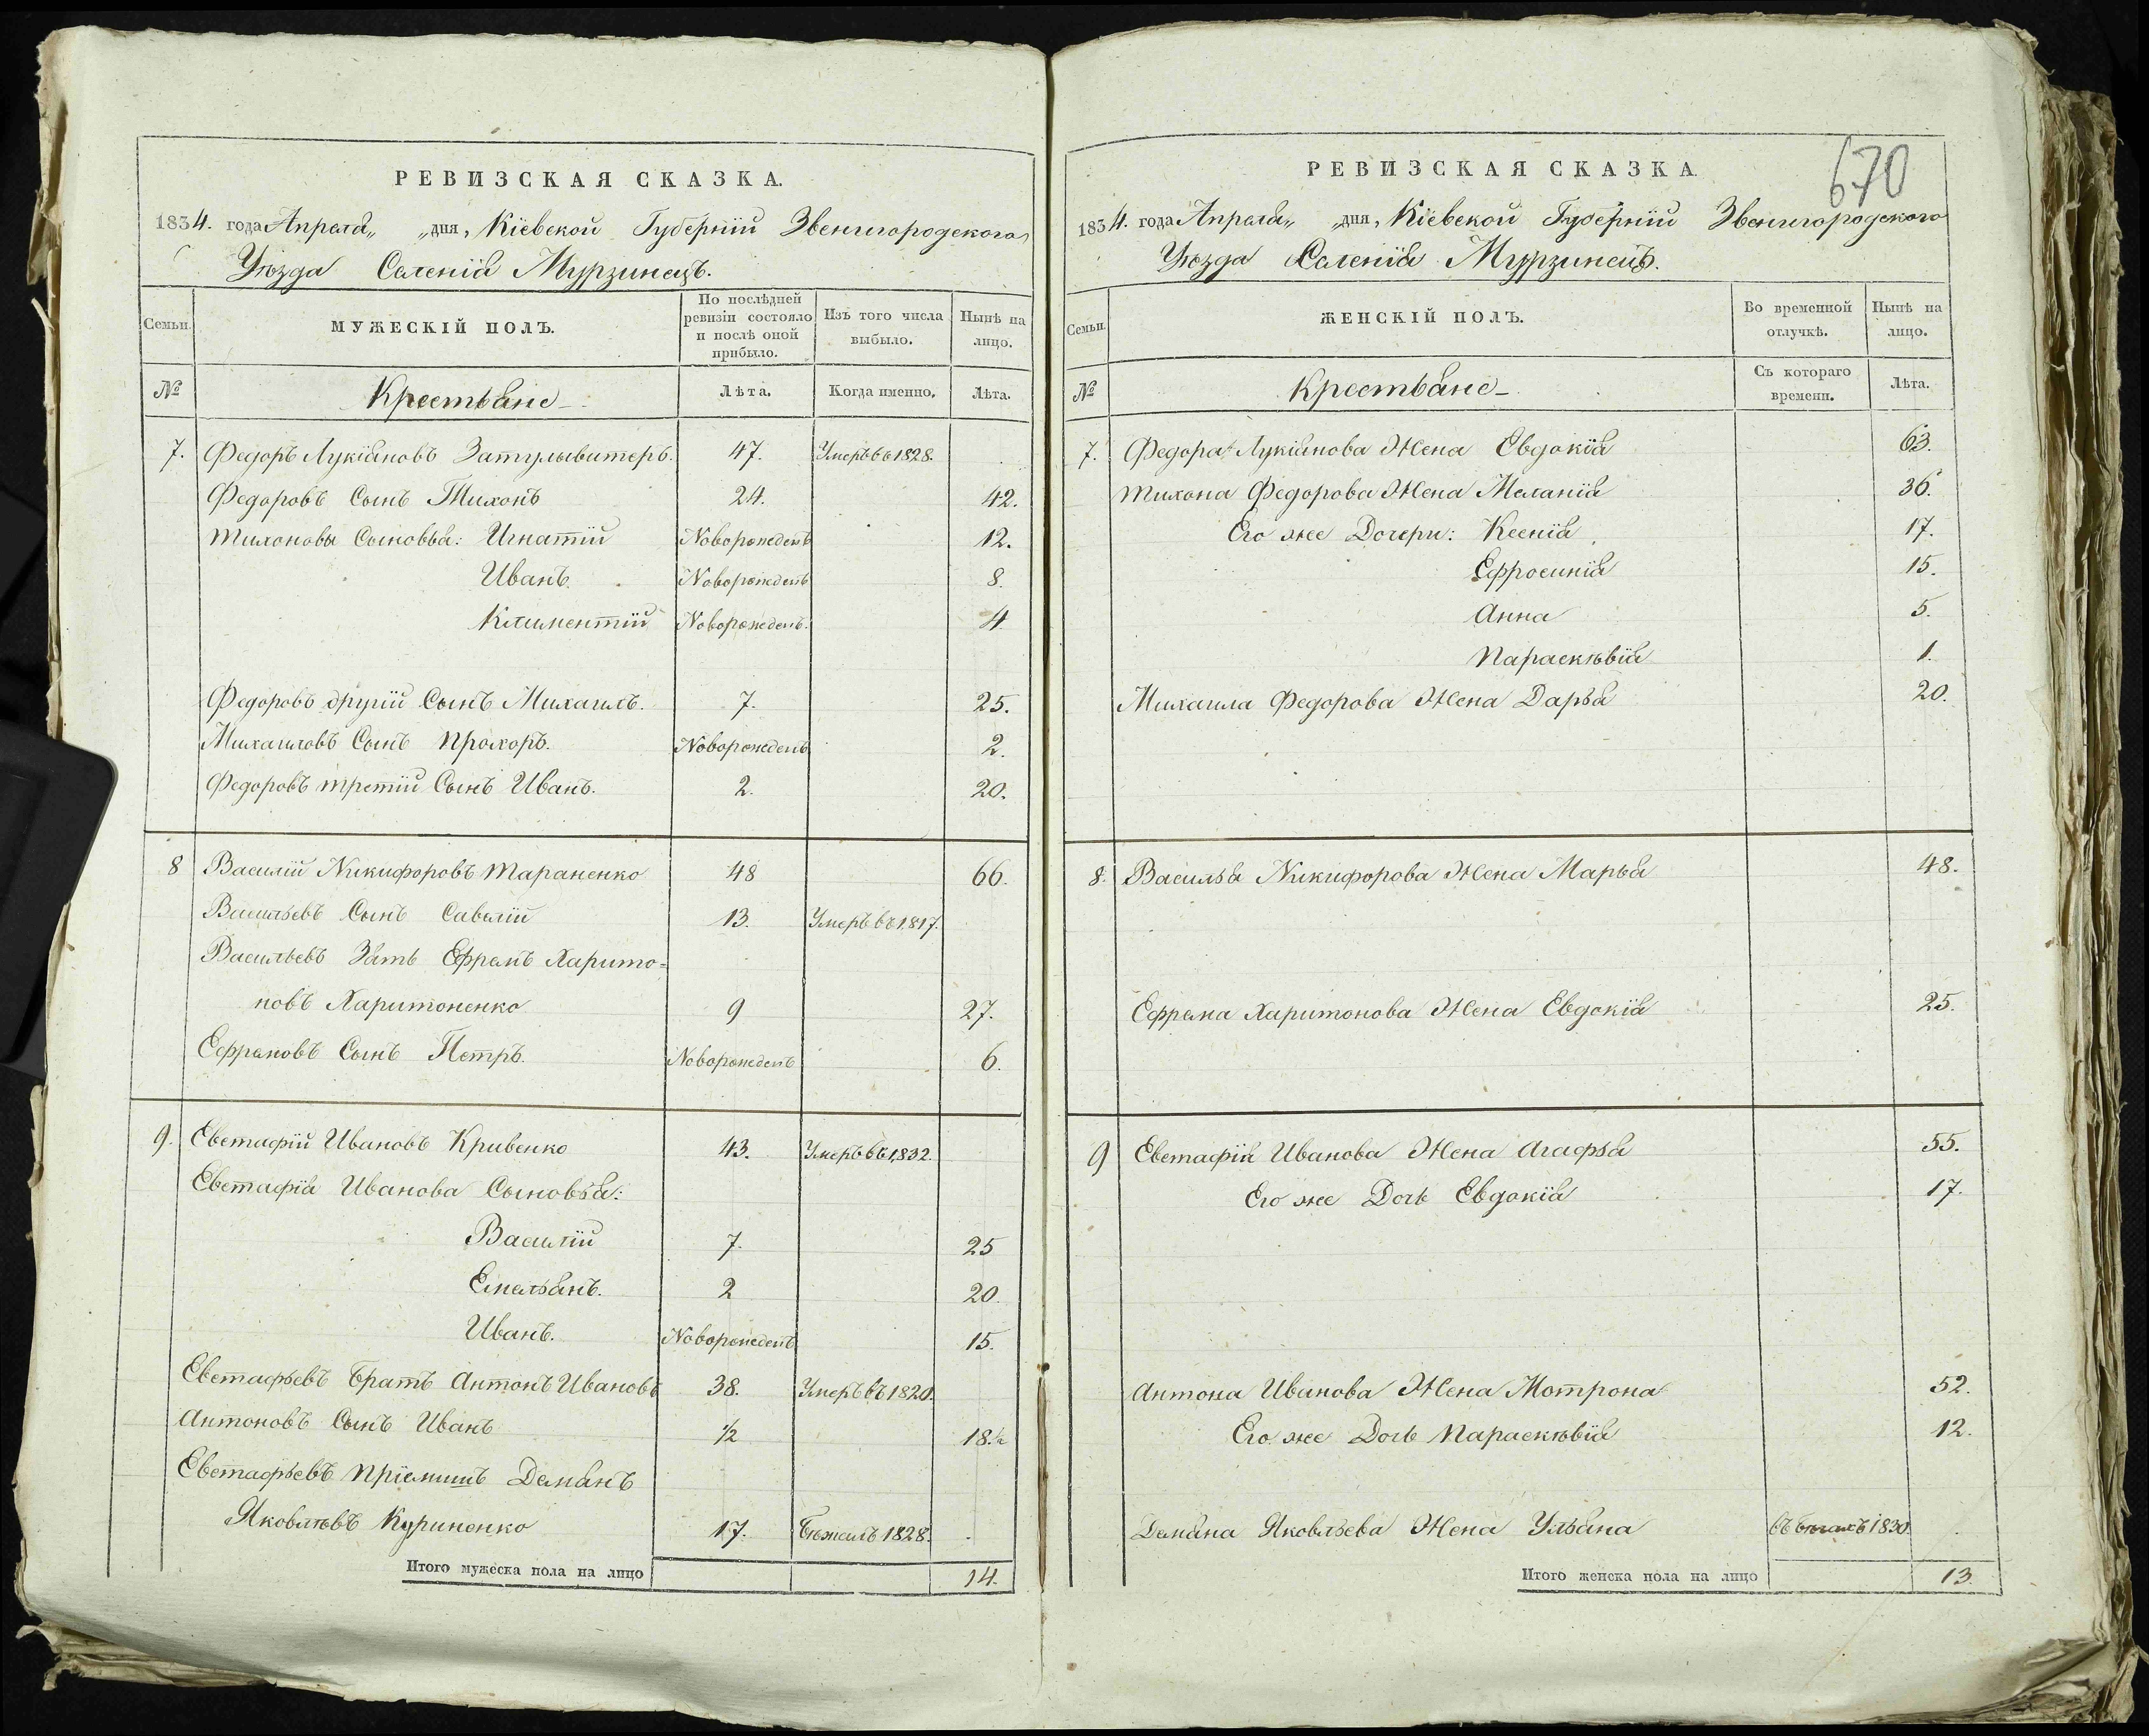 РЕВИЗСКАЯ СКАЗКА.
1834. года Апреля „ „ дня, Кіевской Губерніи Звенигородского
Уѣзда Селенія Мурзинецъ.
Семьи.
МУЖЕСКІЙ ПОЛЪ.
По послѣдней ревизіи состояло и послѣ оной прибыло.
Изъ того числа выбыло.
Нынѣ на лицо.
№ Крестьяне Лѣта. Когда именно. Лѣта.
7. Федоръ Лукіяновъ 47. Умеръ въ 1828.
Федоровъ Сынъ Тихонъ 24. 42.
Тихоновы Сыновья: Игнатій Новорожденъ 12.
Иванъ. Новорожденъ 8.
Климентій Новорожденъ. 4
Федоровъ другій Сынъ Михаилъ. 7. 25.
Михаиловъ Сынъ Прохоръ. Новорожденъ 2.
Федоровъ третій Сынъ Иванъ. 2. 20.
8 Василій Никифоровъ Тараненко 48 66.
Васильевъ Сынъ Савелій 13. Умеръ въ 1817.
Васильевъ Зять Ефремъ Харито=
новъ Харитоненко 9 27.
Ефремовъ Сынъ Петръ. Новорожденъ 6.
9. Евстафій Ивановъ Кривенко 43. Умеръ въ 1832.
Евстафія Иванова Сыновья:
Василій 7. 25
Емельянъ. 2 20.
Иванъ. Новорожденъ 15.
Евстафьевъ братъ Антонъ Ивановъ 38. Умеръ въ 1820.
Антоновъ Сынъ Иванъ ½ 18.½
Евстафьевъ Пріемышъ Демянъ
Яковлѣвъ Куриненко 17. Бѣжалъ 1828.
Итого мужеска пола на лицо 14.
670
РЕВИЗСКАЯ СКАЗКА.
1834. года Апреля „ „ дня, Кіевской Губерніи Звенигородского
Уѣзда Селенія Мурзинецъ.
Семьи.
ЖЕНСКІЙ ПОЛЪ.
Во временной отлучкѣ.
Нынѣ на лицо.
№ Крестьяне Съ котораго времени. Лѣта.
7. Федора Лукіянова Жена Евдокія 63.
Тихона Федорова Жена Меланія 36.
Его же Дочери: Ксенія 17.
Ефросинія 15.
Анна 5.
Параскѣвія 1.
Михаила Федорова Жена Дарья 20.
8. Василья Никифорова Жена Марья 48.
Ефрема Харитонова Жена Евдокія 25.
9 Евстафія Иванова Жена Агафья 55.
Его же Дочь Евдокія 17.
Антона Иванова Жена Мотрона 52.
Его же Дочь Параскѣвія 12.
Демяна Яковлева Жена Ульяна въ бѣгахъ 1830.
Итого женска пола на лицо 13.